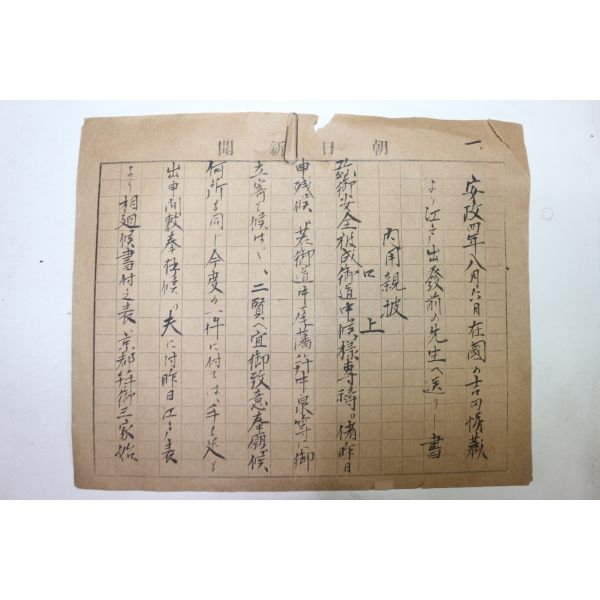 朝日新聞
一、
安政四年八月六日在國の吉田
より江戸出發前の先生へ送りし書
内用親披
口上
御安全被成御道中候様専祷。偖昨日
申残候。若御道中尾藩
立寄も候はゞ、二賢へ宜御致意奉願候、
何所も同じ今度の一件に付ては
出申間敷奉存候。夫に付昨日江戸表
より相廻候書付之表京都并御三家始